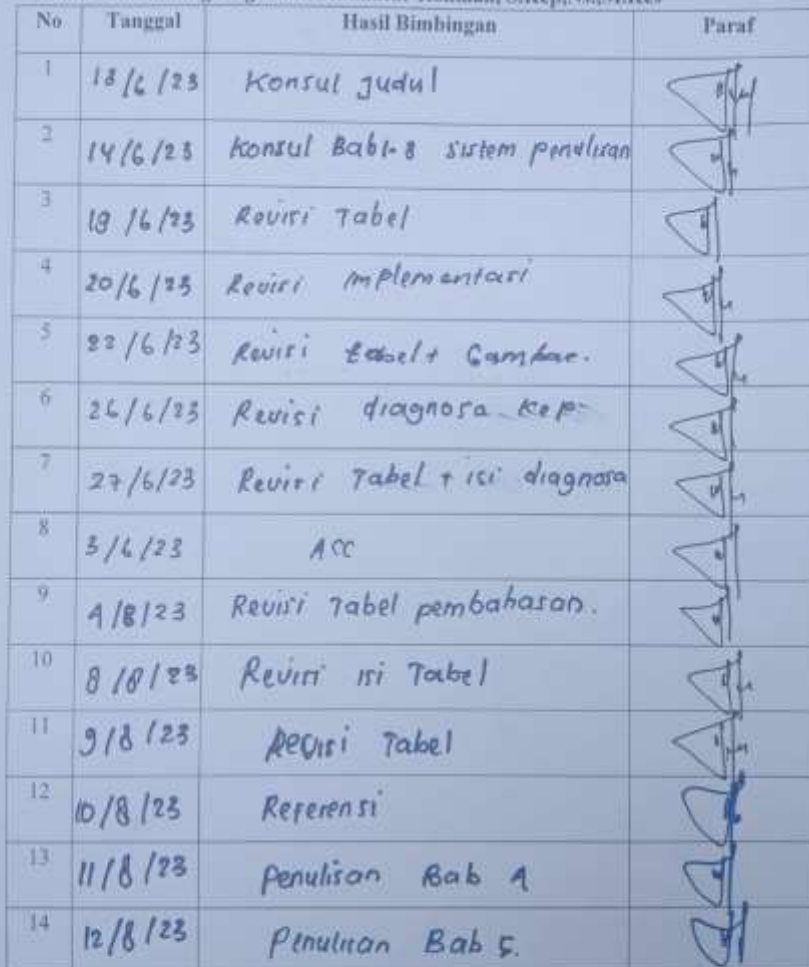 No Tanggal Hasil Bimbingan Paraf
1 13/6/23 Konsul Judul
2 14/6/23 Konsul Bab 1-3 sistem penulisan
3 19/6/23 Revisi Tabel
4 20/6/23 Revisi implementasi
5 22/6/23 Revisi tabel + Gambar.
6 26/6/23 Revisi diagnosa kep-
7 27/6/23 Revisi Tabel + isi diagnosa
8 3/6/23 ACC
9 4/8/23 Revisi Tabel pembahasan.
10 8/8/23 Revisi isi Tabel
11 9/8/23 Revisi Tabel
12 10/8/23 Referensi
13 11/8/23 penulisan Bab 4
14 12/8/23 Penulisan Bab 5.